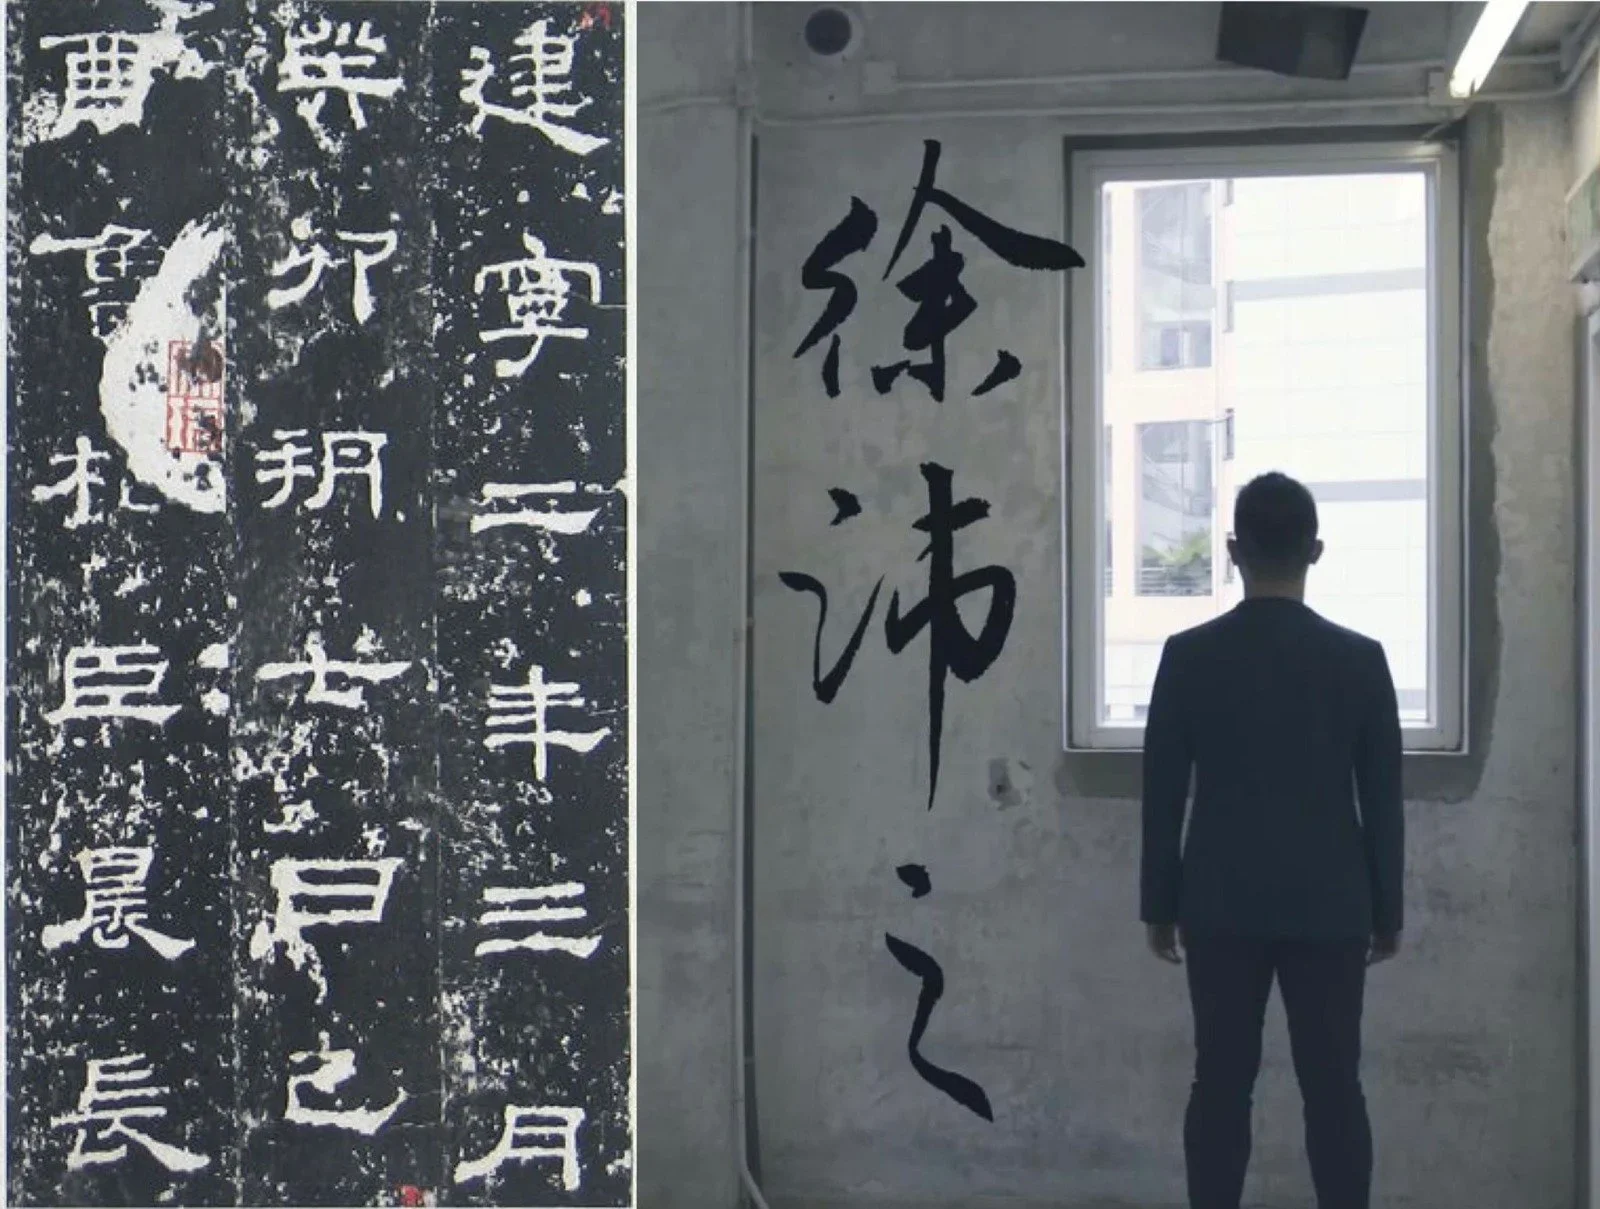 建寧二年三月
癸卯朔七日己
酉魯相臣晨長
徐沛之